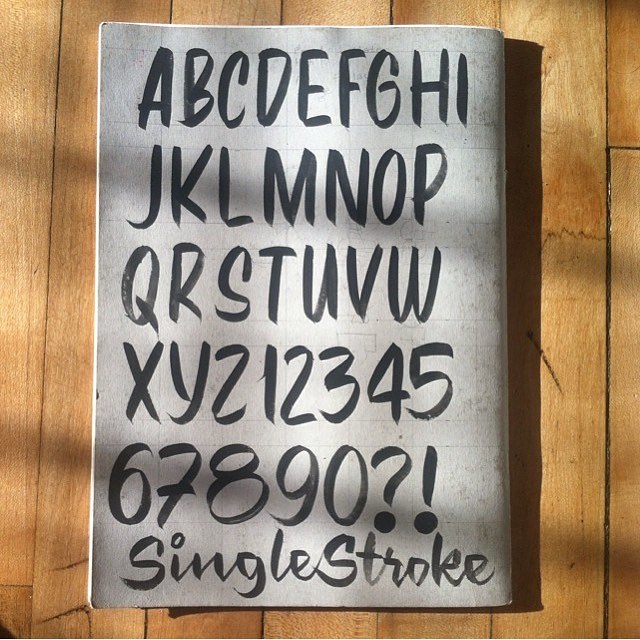 ABCDEFGHI
JKLMNOP
QRSTUVW
XYZ12345
67890?!
SingleStroke